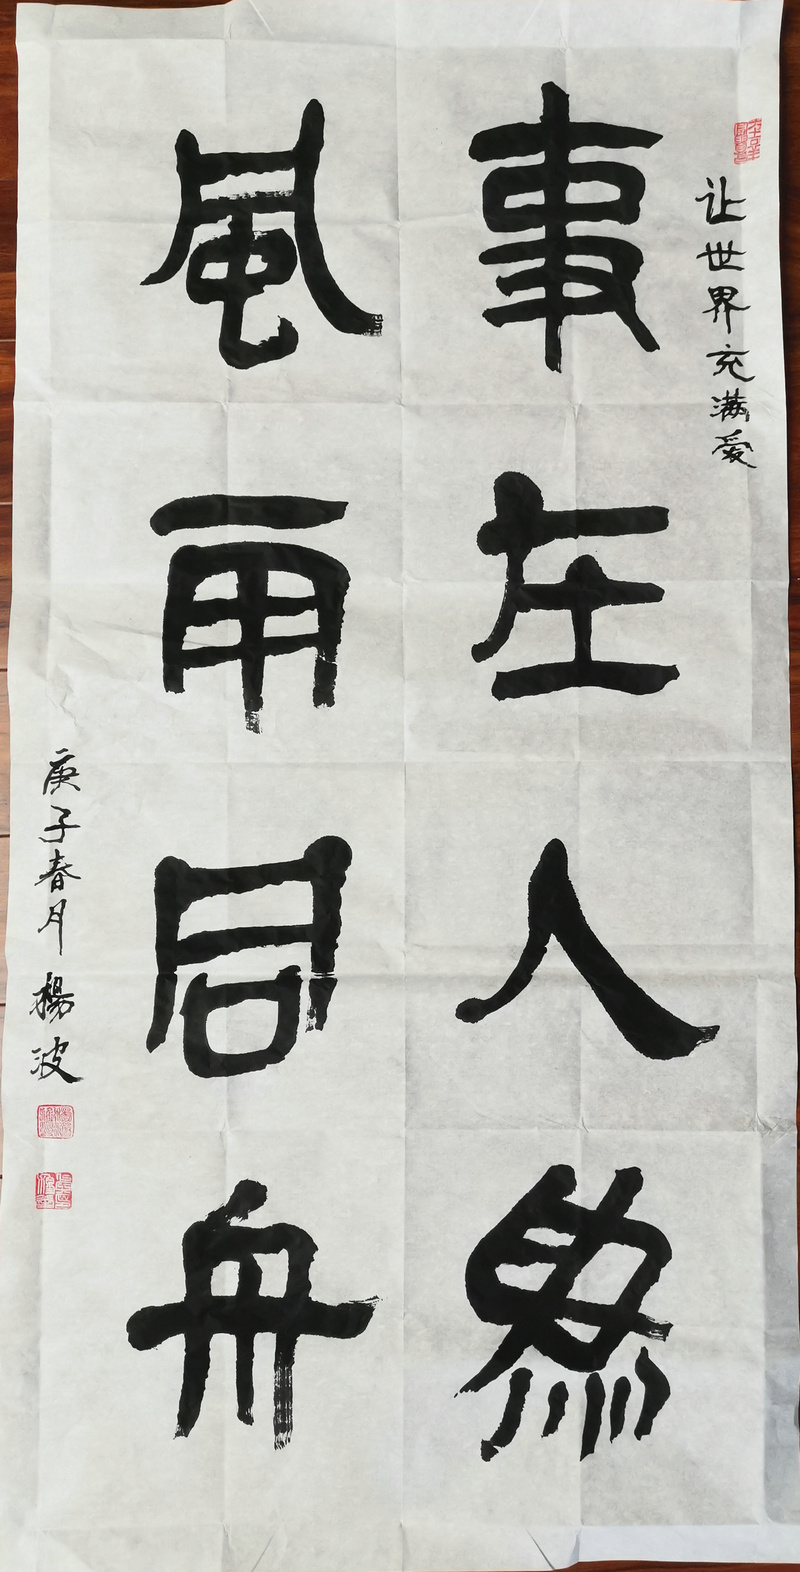 让世界充满爱
事在人為
風雨同舟
庚子春月 楊波